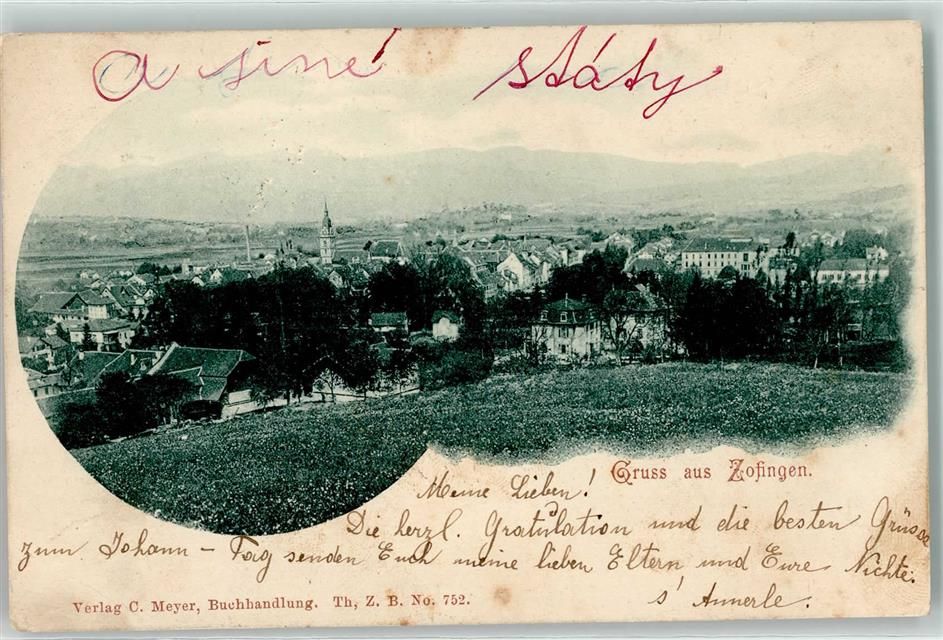 a jiné státy
Gruss aus Zofingen.
Meine Lieben!
Die herzl. Gratulation und die besten Grüsse
zum Johann-Tag senden Euch meine lieben Eltern und Eure Nichte.
s' Annerle.
Verlag C. Meyer, Buchhandlung. Th, Z. B. No. 752.